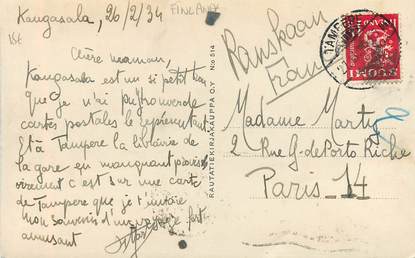 Kangasala, 26/2/34
FINLANDE
Chère maman
Kangasala est un si petit trou
que je n'ai pu trouver de
cartes postales le représentant
Et à Tampere la librairie de
la gare en manquant
c'est sur une carte
de Tampere que je
mon souvenir d'un voyage fort
amusant
RAUTATIEKIRJAKAUPPA O.Y. No 514
Ranskaan
TAMPERE
SUOMI
Madame Marty
2 Rue G. de Porto Riche
Paris 14